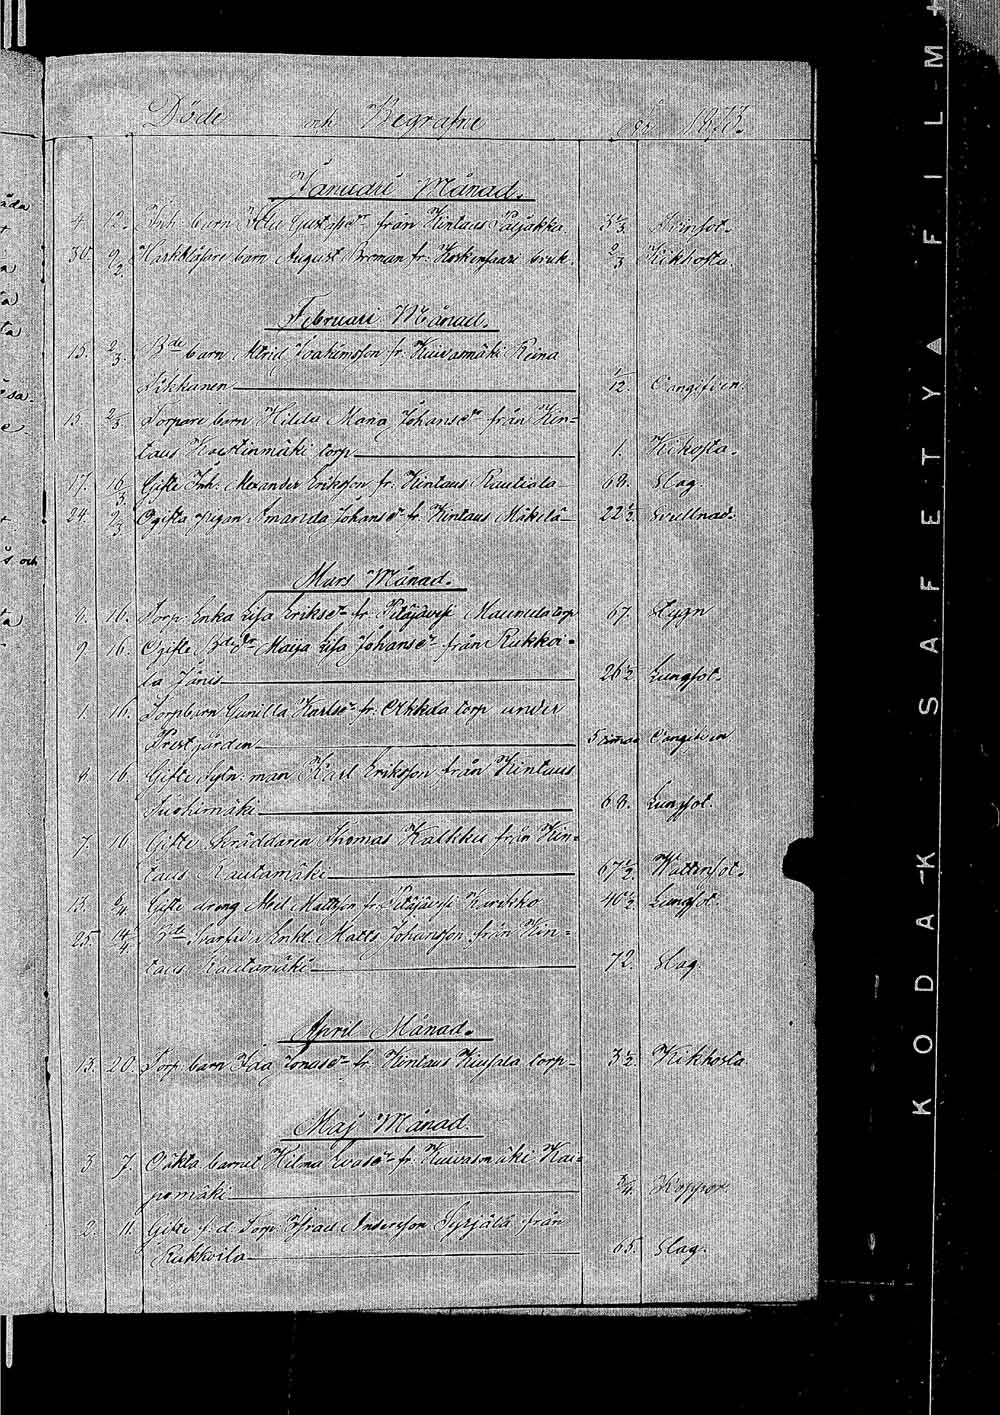 Döde och Begrafne år 1873.
Januari Månad.
4 12. Inh. barn Gustafsdr från Kintaus Päijäkkä. 3⅓ Skinsot.
30. 9/2. Karkkläjare barn August Broman fr. Koskensaari bruk. 2/3 Kikhosta.
Februari Månad.
15. 2/3. Bde barn Joakimsson fr. Kuivasmäki Reina
Tikkanen 1/12. Oangifven.
15 2/3 Torpare barn Hilda Maria Johansdr från Kin-
taus Koistinmäki torp 1. Kikosta.
17. 16/3. Gifte Inh. Alexander Eriksson fr. Kintaus Rautiala 68. Slag.
24. 2/3 Ogifta pigan Amanda Johansdr fr. Kintaus Mäkelä 22½. Svullnad.
Mars Månad.
8. 16. Torp. Enka Lisa Eriksdr fr. Pitäjävesi Maunula torp 67. Stygn
9 16. Ogifte Bdedr Maija Lisa Johansdr från Rukkoi-
la Jänis 26½ Lungsot.
1. 16. Torpbarn Gunilla Karlsdr fr. Olkkola torp under
Prestgården 5 timar Oangifven
8. 16. Gifte Sytn. man Karl Eriksson från Kintaus
Suohimäki 68. Lungsot.
7. 16 Gifte Skräddaren Thomas Kalkku från Kin-
taus Rautamäki 67½. Wattensot.
13. 6/4. Gifte dreng Abel Mattsson fr. Pitäjävesi Kirikko 40½. Lungsot.
25 14/4. Bde Svarfvd. Enkl. Matts Johansson från Kin-
taus Rautamäki 72. Slag.
April Månad.
13. 20. Torp. barn Ida Jonasdr fr. Kintaus Kujala torp 3½. Kikhosta
Maj Månad.
3 7. Oäkta barnet Hilma Evasdr fr. Kuivasmäki Kai-
pomäki ¾. Koppor.
2. 11. Gifte f.d. Torp. Israel Andersson Syrjälä från
Rukkoila 65. Slag.
KODAK SAFETY FILM